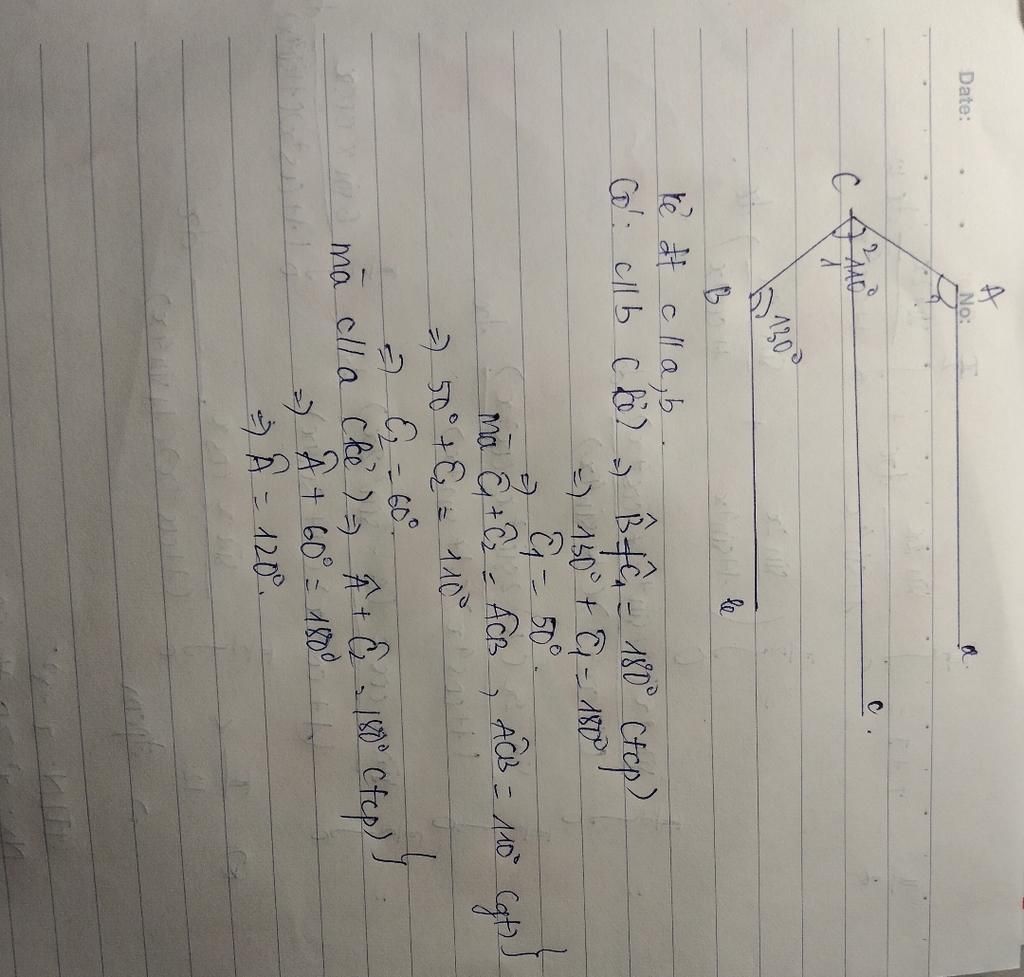 Date:
No:
A
a
C
2
110°
1
c
130°
B
b
kẻ đt c // a, b
Có: c // b (kẻ) => B̂ + Ĉ1 = 180° (tcp)
=> 130° + Ĉ1 = 180°
=> Ĉ1 = 50°.
mà Ĉ1 + Ĉ2 = AĈB, AĈB = 110° (gt) }
=> 50° + Ĉ2 = 110°
=> Ĉ2 = 60°.
mà c // a (kẻ) => Â + Ĉ2 = 180° (tcp) }
=> Â + 60° = 180°
=> Â = 120°.